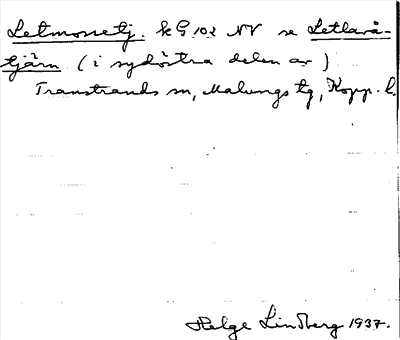 Letmossetj. kG 102 NV se Letlarå-
tjärn (i sydöstra delen av)
Transtrands sn, Malungs tg, Kopp. l.
Helge Lindberg 1937.